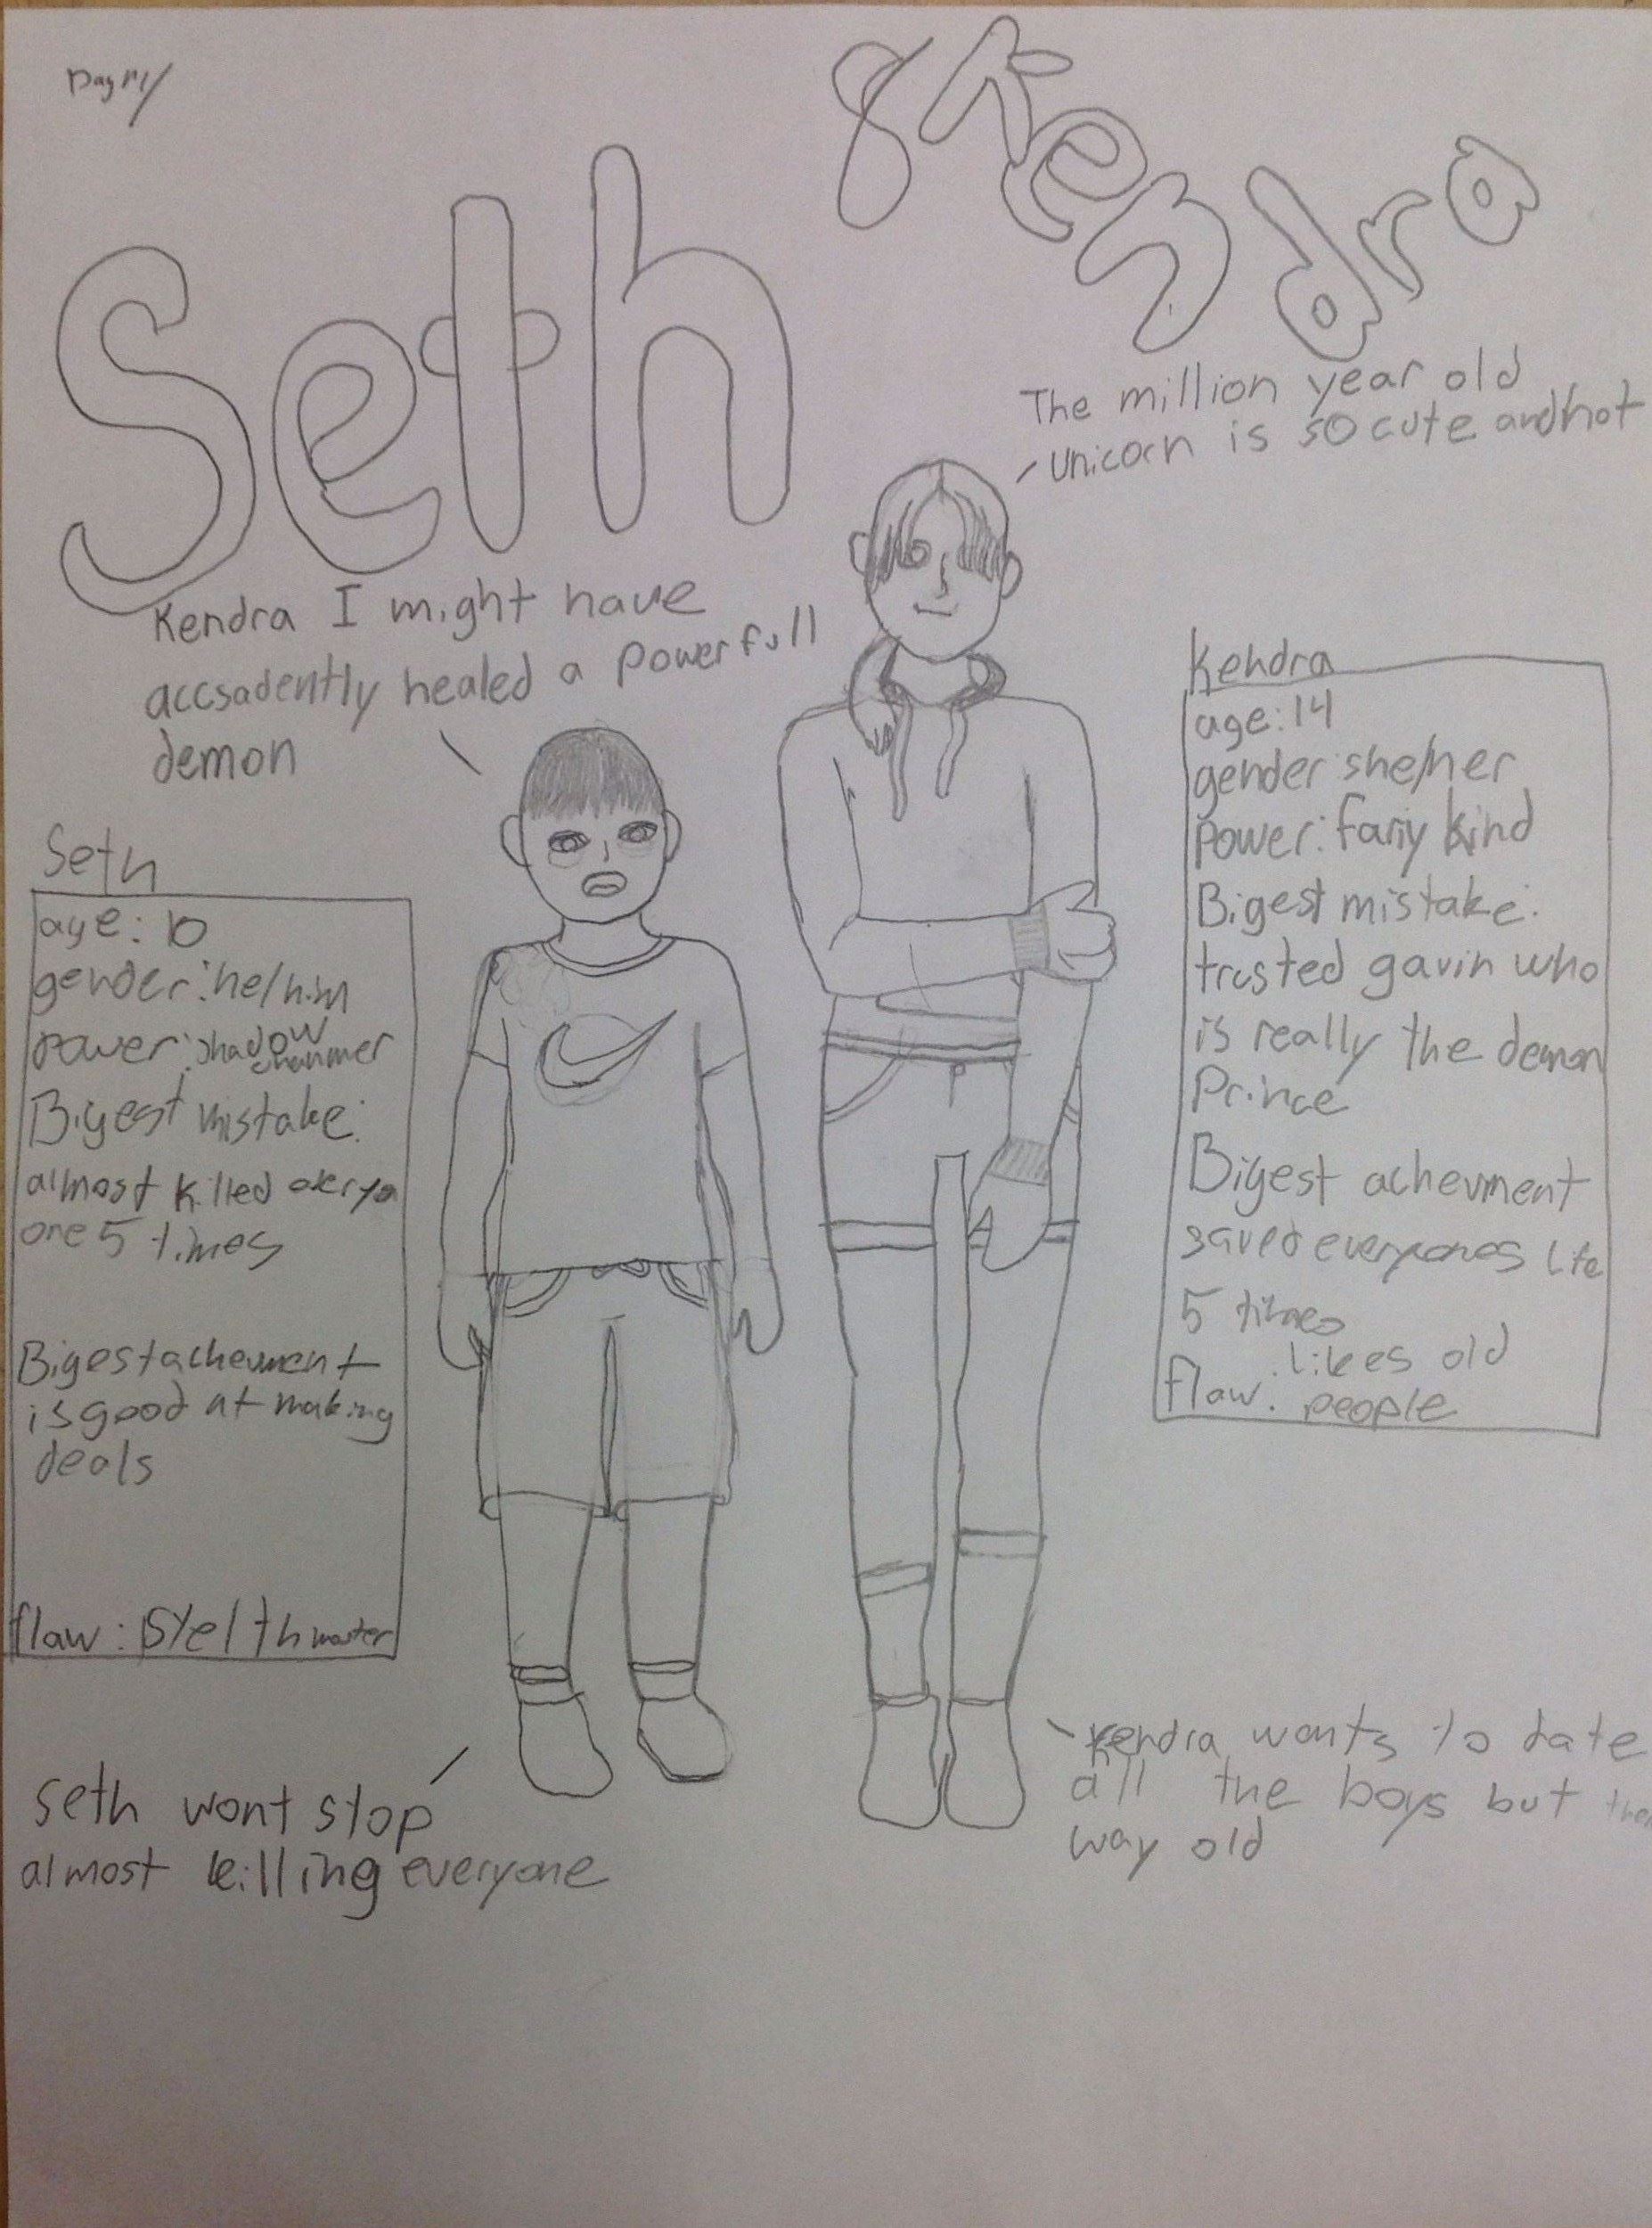 Seth
& Kendra
The million year old
unicorn is so cute and hot
Kendra I might have
accsadently healed a powerfull
demon
Seth
age: 10
gender: he/him
power: shadow
charmer
Bigest mistake:
almost killed
one 5 times
Bigest achevment
is good at making
deals
flaw: Stelth master
Kendra
age: 14
gender she/her
Power: fariy kind
Bigest mistake:
trusted gavin who
is really the demon
Prince
Bigest achevment
saved everyones life
5 times
flaw: likes old
people
seth wont stop
almost killing everyone
Kendra wants to date
all the boys but
way old